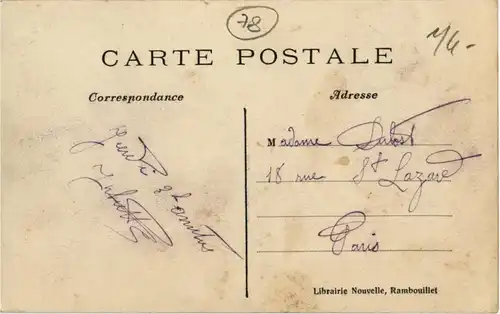 78
1/6-
CARTE POSTALE
Correspondance
Adresse
Madame
18 rue St Lazare
Paris
Librairie Nouvelle, Rambouillet